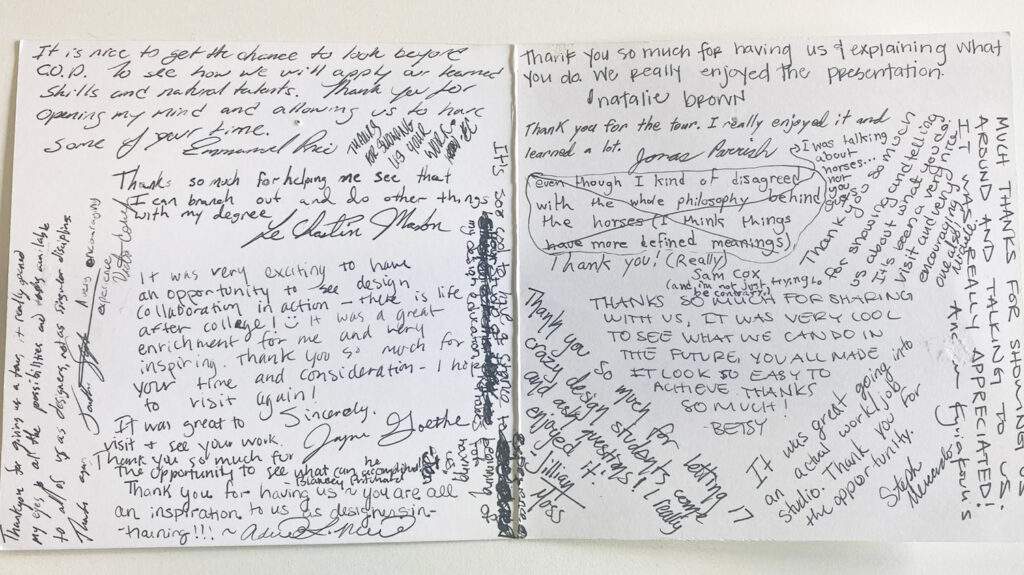 It is nice to get the chance to look beyond
C.O.D. To see how we will apply our learned
skills and natural talents. Thank you for
opening my mind and allowing us to have
some of your time.
Emmanuel
THANKS
FOR SHOWING
US YOUR
WORK!
Thanks so much for helping me see that
I can branch out and do other things
with my degree.
It was very exciting to have
an opportunity to see design
collaboration in action - there is life
after college! It was a great
enrichment for me and very
inspiring. Thank you so much for
your time and consideration - I hope
to visit again!
Sincerely,
Jayne Goethe
It was great to
visit & see your work.
Thank you so much for
the opportunity to see what can be accomplished
Thank you for having us ~ you are all
an inspiration to us as designers-in-
-training!!! ~
Thank you for giving us a tour, it really opened
my eyes to all the possibilities and ways available
to all of us as designers, not as singular disciplines
Thanks again
A very encouraging
experience
It's
so
good to
Thank you so much for having us & explaining what
you do. We really enjoyed the presentation.
natalie brown
Thank you for the tour. I really enjoyed it and
learned a lot.
Jonas Parrish
even though I kind of disagreed
with the whole philosophy behind
the horses (I think things
have more defined meanings)
I was talking
about
horses...
not
you
Thank you! (Really)
Sam Cox
(and i'm not just trying to
be contrary)
Thank you so much
for showing and telling
us about what you do!
It's been a very nice
visit and very
encouraging
MUCH THANKS FOR SHOWING US
AROUND AND TALKING TO US.
IT WAS REALLY APPRECIATED!
THANKS SO MUCH FOR SHARING
WITH US, IT WAS VERY COOL
TO SEE WHAT WE CAN DO IN
THE FUTURE, YOU ALL MADE
IT LOOK SO EASY TO
ACHIEVE THANKS
SO MUCH!
-BETSY
Thank you so much for letting 17
crazy design students come
and ask questions! I really
enjoyed it.
-Jillian
Moss
It was great going into
an actual work/job
studio. Thank you for
the opportunity.
Steph